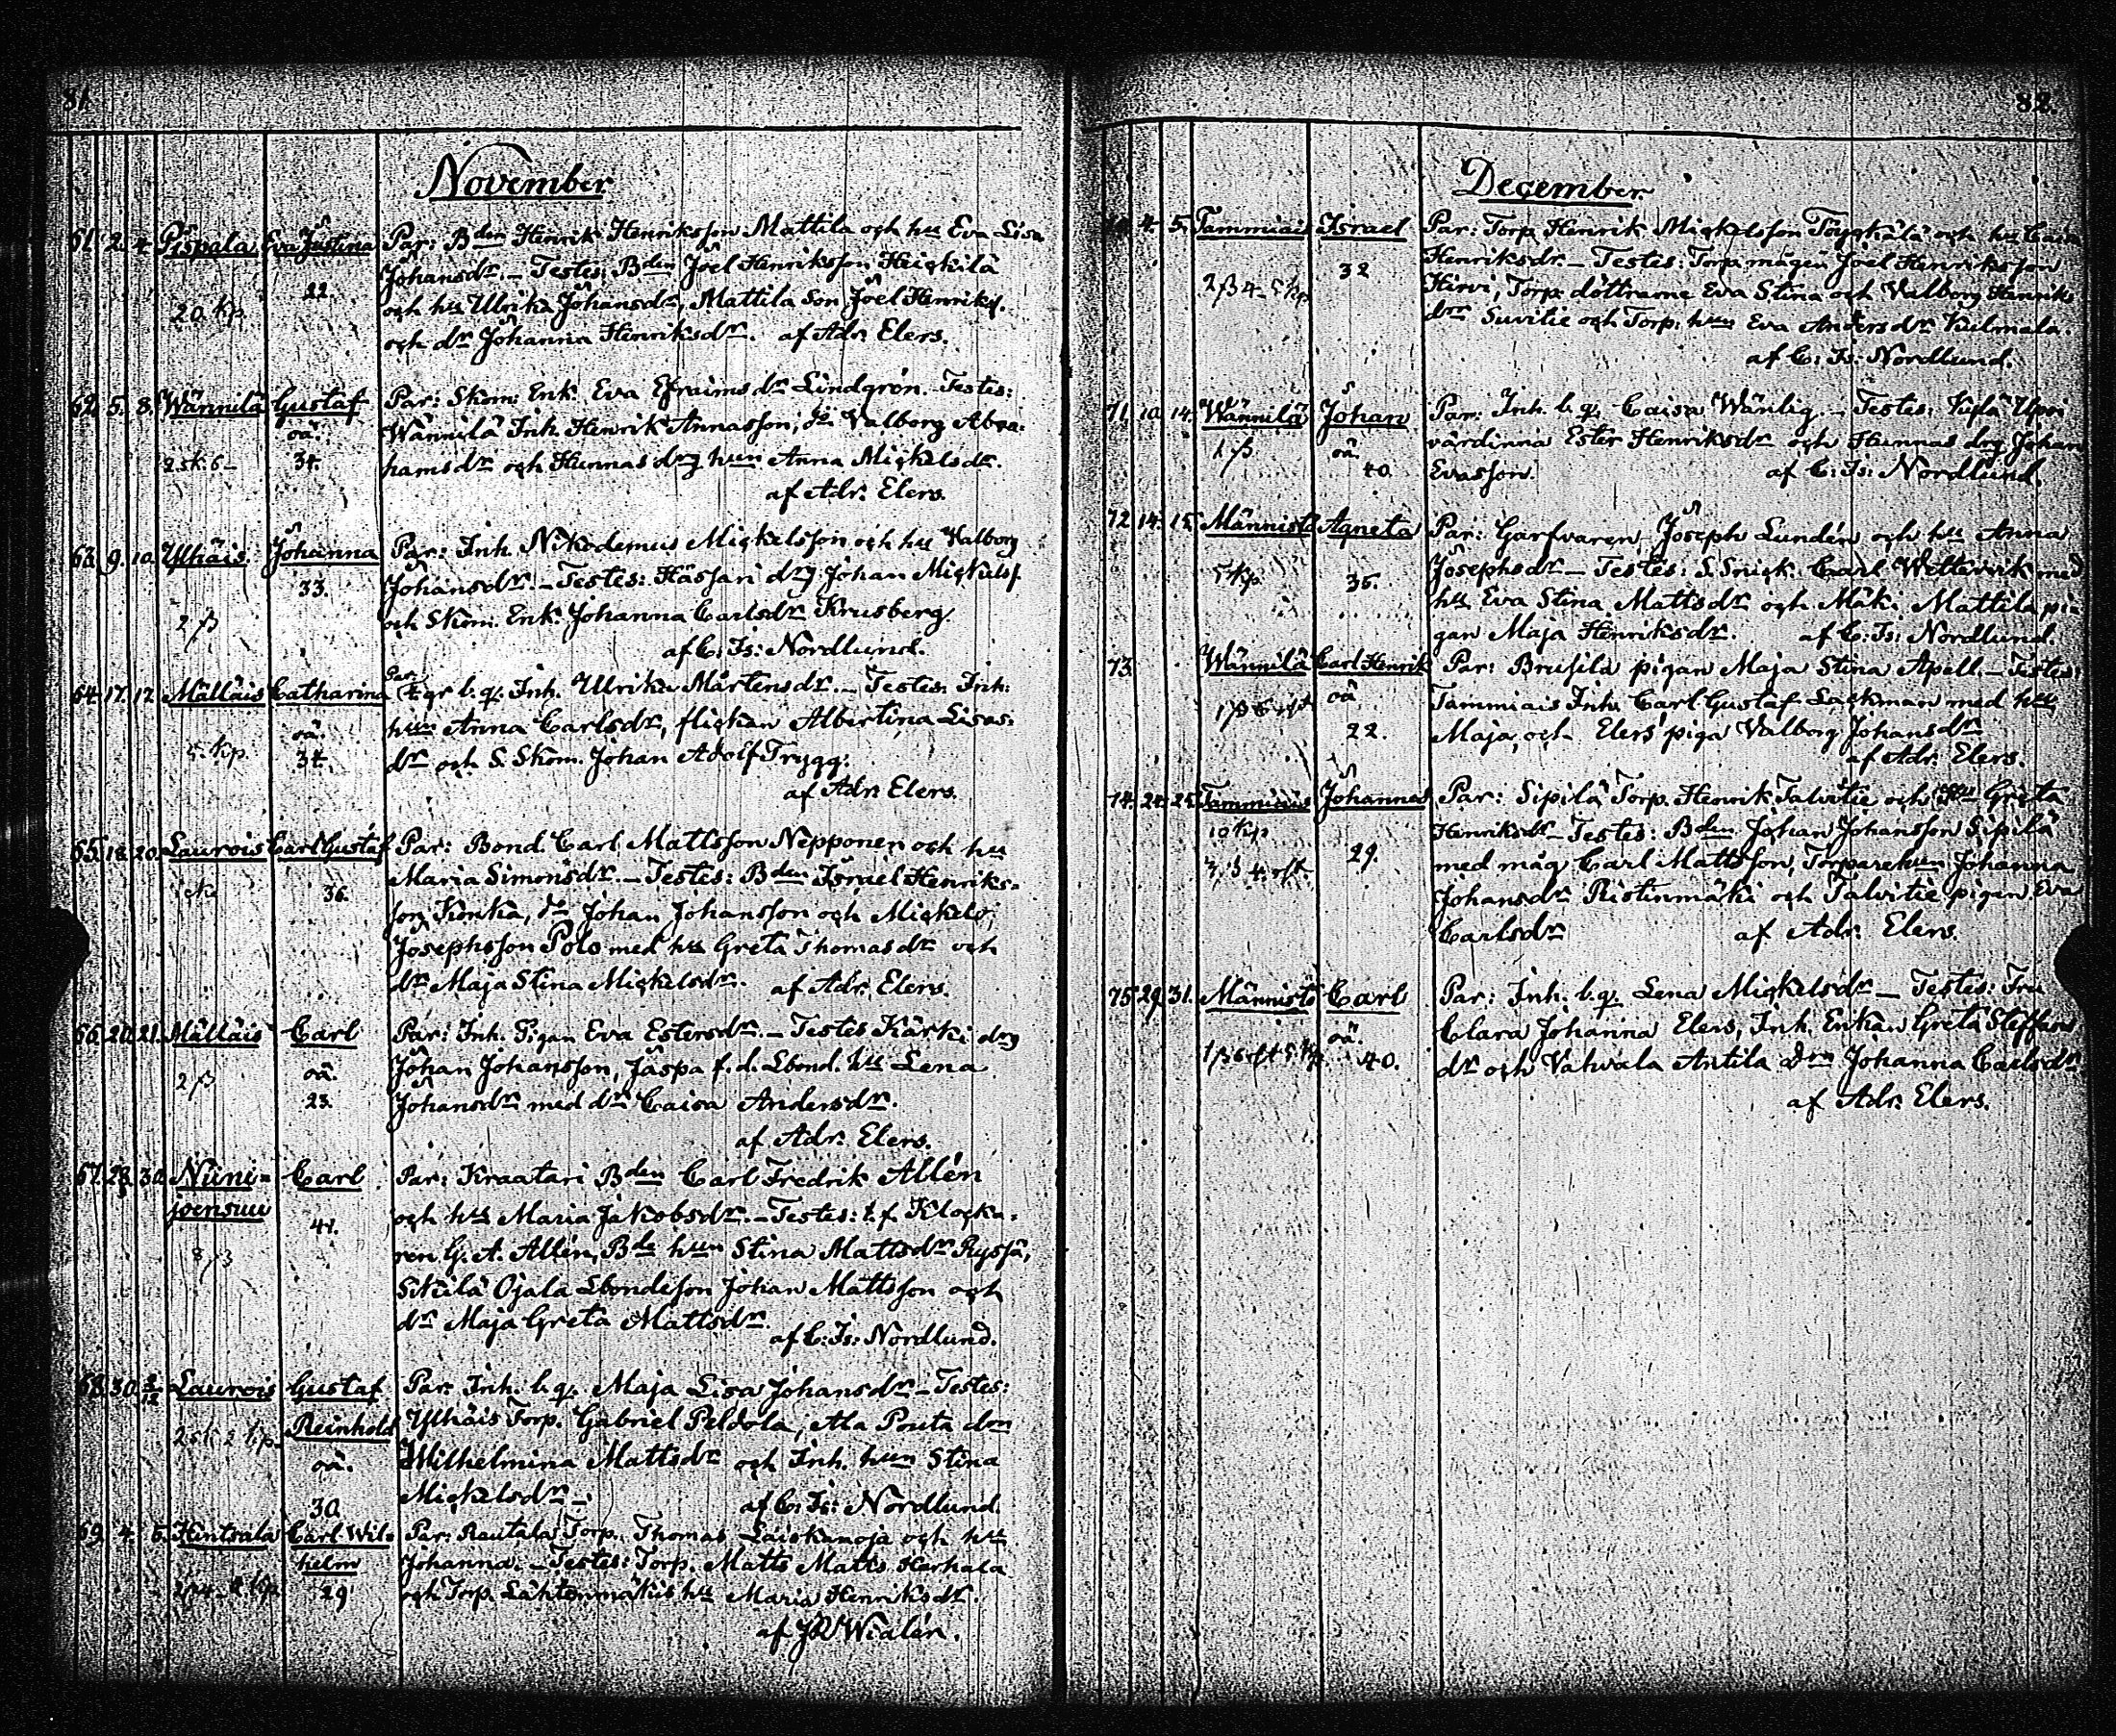 81
November
61. 2. 4. Pispala Eva Justina Par: Bden Henrik Henriksson Mattila och hu Eva Lisa
Johansdr. – Testes: Bden Joel Henriksson Heickilä
22.
20 kp. och hu Ulrika Johansdr, Mattila Son Joel Henriks.
och dr Johanna Henriksdr. af Adr. Elers.
62. 5. 8. Wännilä Gustaf Par: Skom: Enk. Eva Efraimsdr Lindgrén. – Testes:
oä. Wännilä Inh. Henrik Annasson, do Valborg Abra-
2 sk. 6 – 34. hamsdr och Hunnas drg hun Anna Mickelsdr.
af Adr. Elers.
63. 9. 10. Ylhäis. Johanna Par: Inh. Nikodemus Mickelsson och hu Valborg
33. Johansdr. – Testes: Hässari drg Johan Mickelss.
2 β och Skom. Enk. Johanna Carlsdr Krusberg.
af C: Is: Nordlund.
64. 17. 17. Mälläis Catharina Par: l. q. Inh. Ulrika Mårtensdr. – Testes: Inh:
oä. hun Anna Carlsdr, flickan Albertina Lisas-
5 kp. 34. dr och S. Skom. Johan Adolf Trygg.
af Adr. Elers.
65. 18. 20. Laurois Carl Gustaf Par: Bond. Carl Mattsson Nepponen och hu
Maria Simonsdr. – Testes: Bden Israel Henriks-
36. son Konka, do Johan Johansson och Mickel
Josephsson Polo med hu Greta Thomasdr och
dr Maja Stina Mickelsdr. af Adr. Elers.
66. 20. 21. Mälläis Carl Par: Inh. Pigan Eva Estersdr. – Testes Kärki drg
oä. Johan Johansson, Jaspa f. d. Lbond. hu Lena
2 β 23. Johansdr med dr Caisa Andersdr.
af Adr. Elers.
67. 28. 30. Niini- Carl Par: Kraatari Bden Carl Fredrik Allén
joensuu 41. och hu Maria Jakobsdr. – Testes: t. f. Klocka-
8 β ren G. A. Allén, Bde hun Stina Mattsdr Ryssä,
Sikilä Ojala Lbondesson Johan Mattsson och
dr Maja Greta Mattsdr.
af C: Is: Nordlund.
68. 30. 2/12 Laurois Gustaf Par: Inh. l. q. Maja Lisa Johansdr – Testes:
Reinhold Ylhäis Torp. Gabriel Peldola, Ala Pouta don
2 sk 2 kp. oä. Wilhelmina Mattsdr och Inh. hun Stina
30. Mickelsdr –. af C: Is: Nordlund.
69. 4. 5. Hintsala Carl Wil- Par: Rautala Torp. Thomas Laiskanoja och hu
helm Johanna. – Testes: Torp. Matts Matts. Harhala
29 och Torp. Lähtenmäkis hu Maria Henriksdr.
af Wialén.
82
December.
4. 5. Tammiais Israel Par: Torp. Henrik Mickelsson Töyckälä och hu Caisa
32 Henriksdr. – Testes: Torp. mågen Joel Henriksson
2 β 4 – 5 kp Hirvi, Torp. döttrarne Eva Stina och Valborg Henriks
drr Suvitie och Torp. hun Eva Andersdr Kulmala.
af C: Is: Nordlund.
71. 10. 14. Wännilä Johan Par: Inh. l. q. Caisa Wänlig. – Testes:
1 β oä. värdinna Ester Henriksdr och Hunnas drg Johan
40. Evasson. af C: Is: Nordlund.
72. 14. 15. Männistö Agneta Par: Garfvaren, Joseph Lundén och hu Anna
5 kp. 35. Josephsdr – Testes: S. Snick. Carl Wettervik med
hu Eva Stina Mattsdr och Mäki Mattila pi-
gan Maja Henriksdr. af C: Is: Nordlund.
73. Wännilä Carl Henrik Par: Brusila pigan Maja Stina Apell. – Testes:
oä Tammiais Inh. Carl Gustaf Lackman med hu
22. Maja, och Elers' piga Valborg Johansdr
af Adr. Elers.
74. 24. 25. Tammiais Johannes Par: Sipilä Torp. Henrik Talvitie och hu Greta
10 kp Henriksdr – Testes: Bden Johan Johansson Sipilä
29. med måg Carl Mattsson, Torparehun Johanna
Johansdr Ristinmäki och Talvitie pigan Eva
Carlsdr af Adr. Elers.
75. 29. 31. Männistö Carl Par: Inh. l. q. Lena Mickelsdr – Testes: Fru
oä. Clara Johanna Elers, Inh. Enkan Greta Steffans
40. dr och Vahvala Antila drn Johanna Carlsdr
af Adr. Elers.